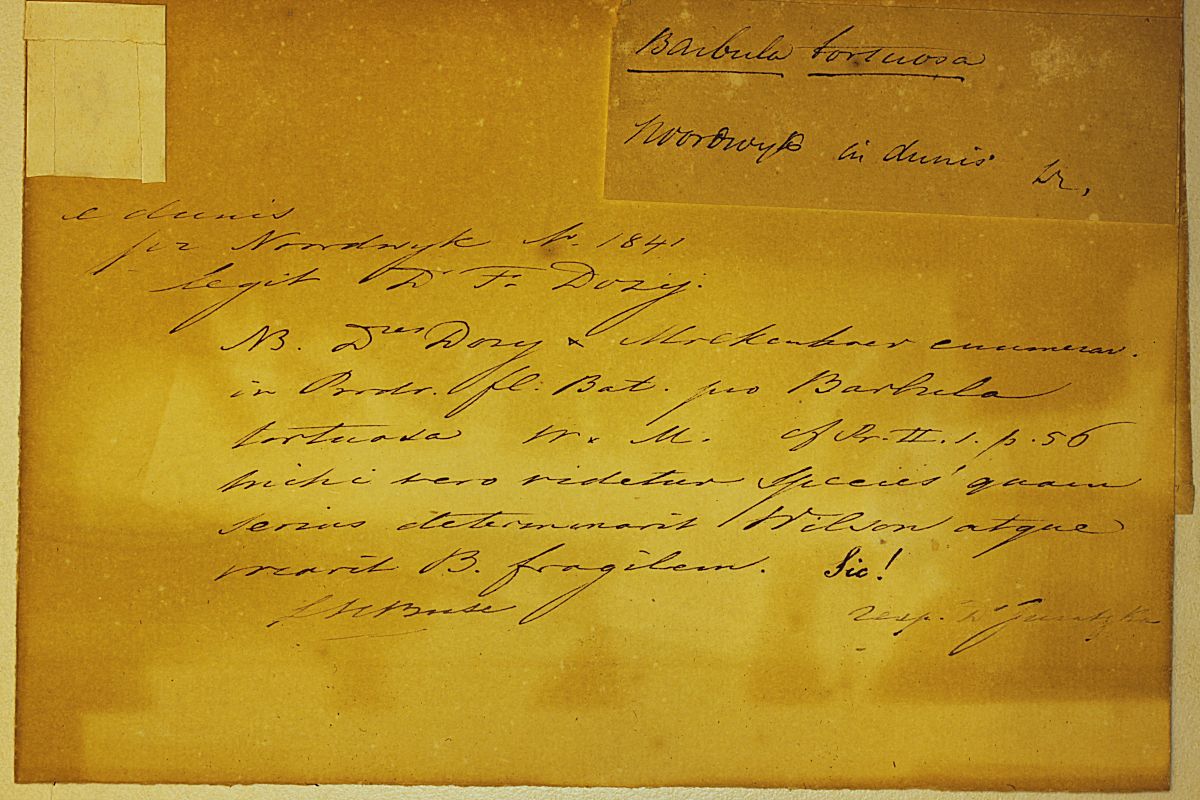 Barbula tortuosa
Noordwyk in dunis Dz,
e dunis
per Noordwyk Ao. 1841
legit Dr Fr. Dozij.
NB. Dres Dozy & Molkenboer enumerav.
in Prodr. fl: Bat. pro Barbula
tortuosa W & M. cf Pr. II. 1. p. 56
mihi vero videtur Species quam
serius determinavit Wilson atque
vocavit B. fragilem. Sic!
LHBuse resp. Dr Juratzka